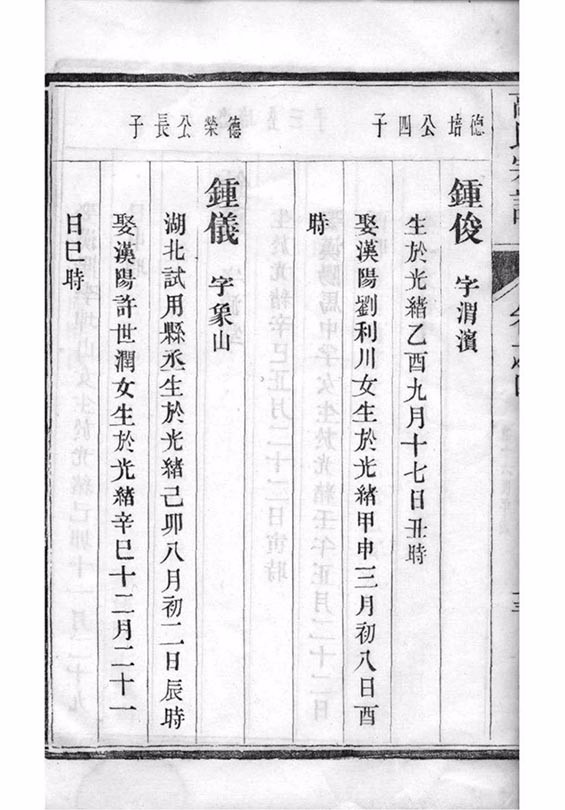 德培公四子
鍾俊 字渭濱
生於光緒乙酉九月十七日丑時
娶漢陽劉利川女生於光緒甲申三月初八日酉
時
德榮公長子
鍾儀 字象山
湖北試用縣丞生於光緒己卯八月初二日辰時
娶漢陽許世潤女生於光緒辛巳十二月二十一
日巳時